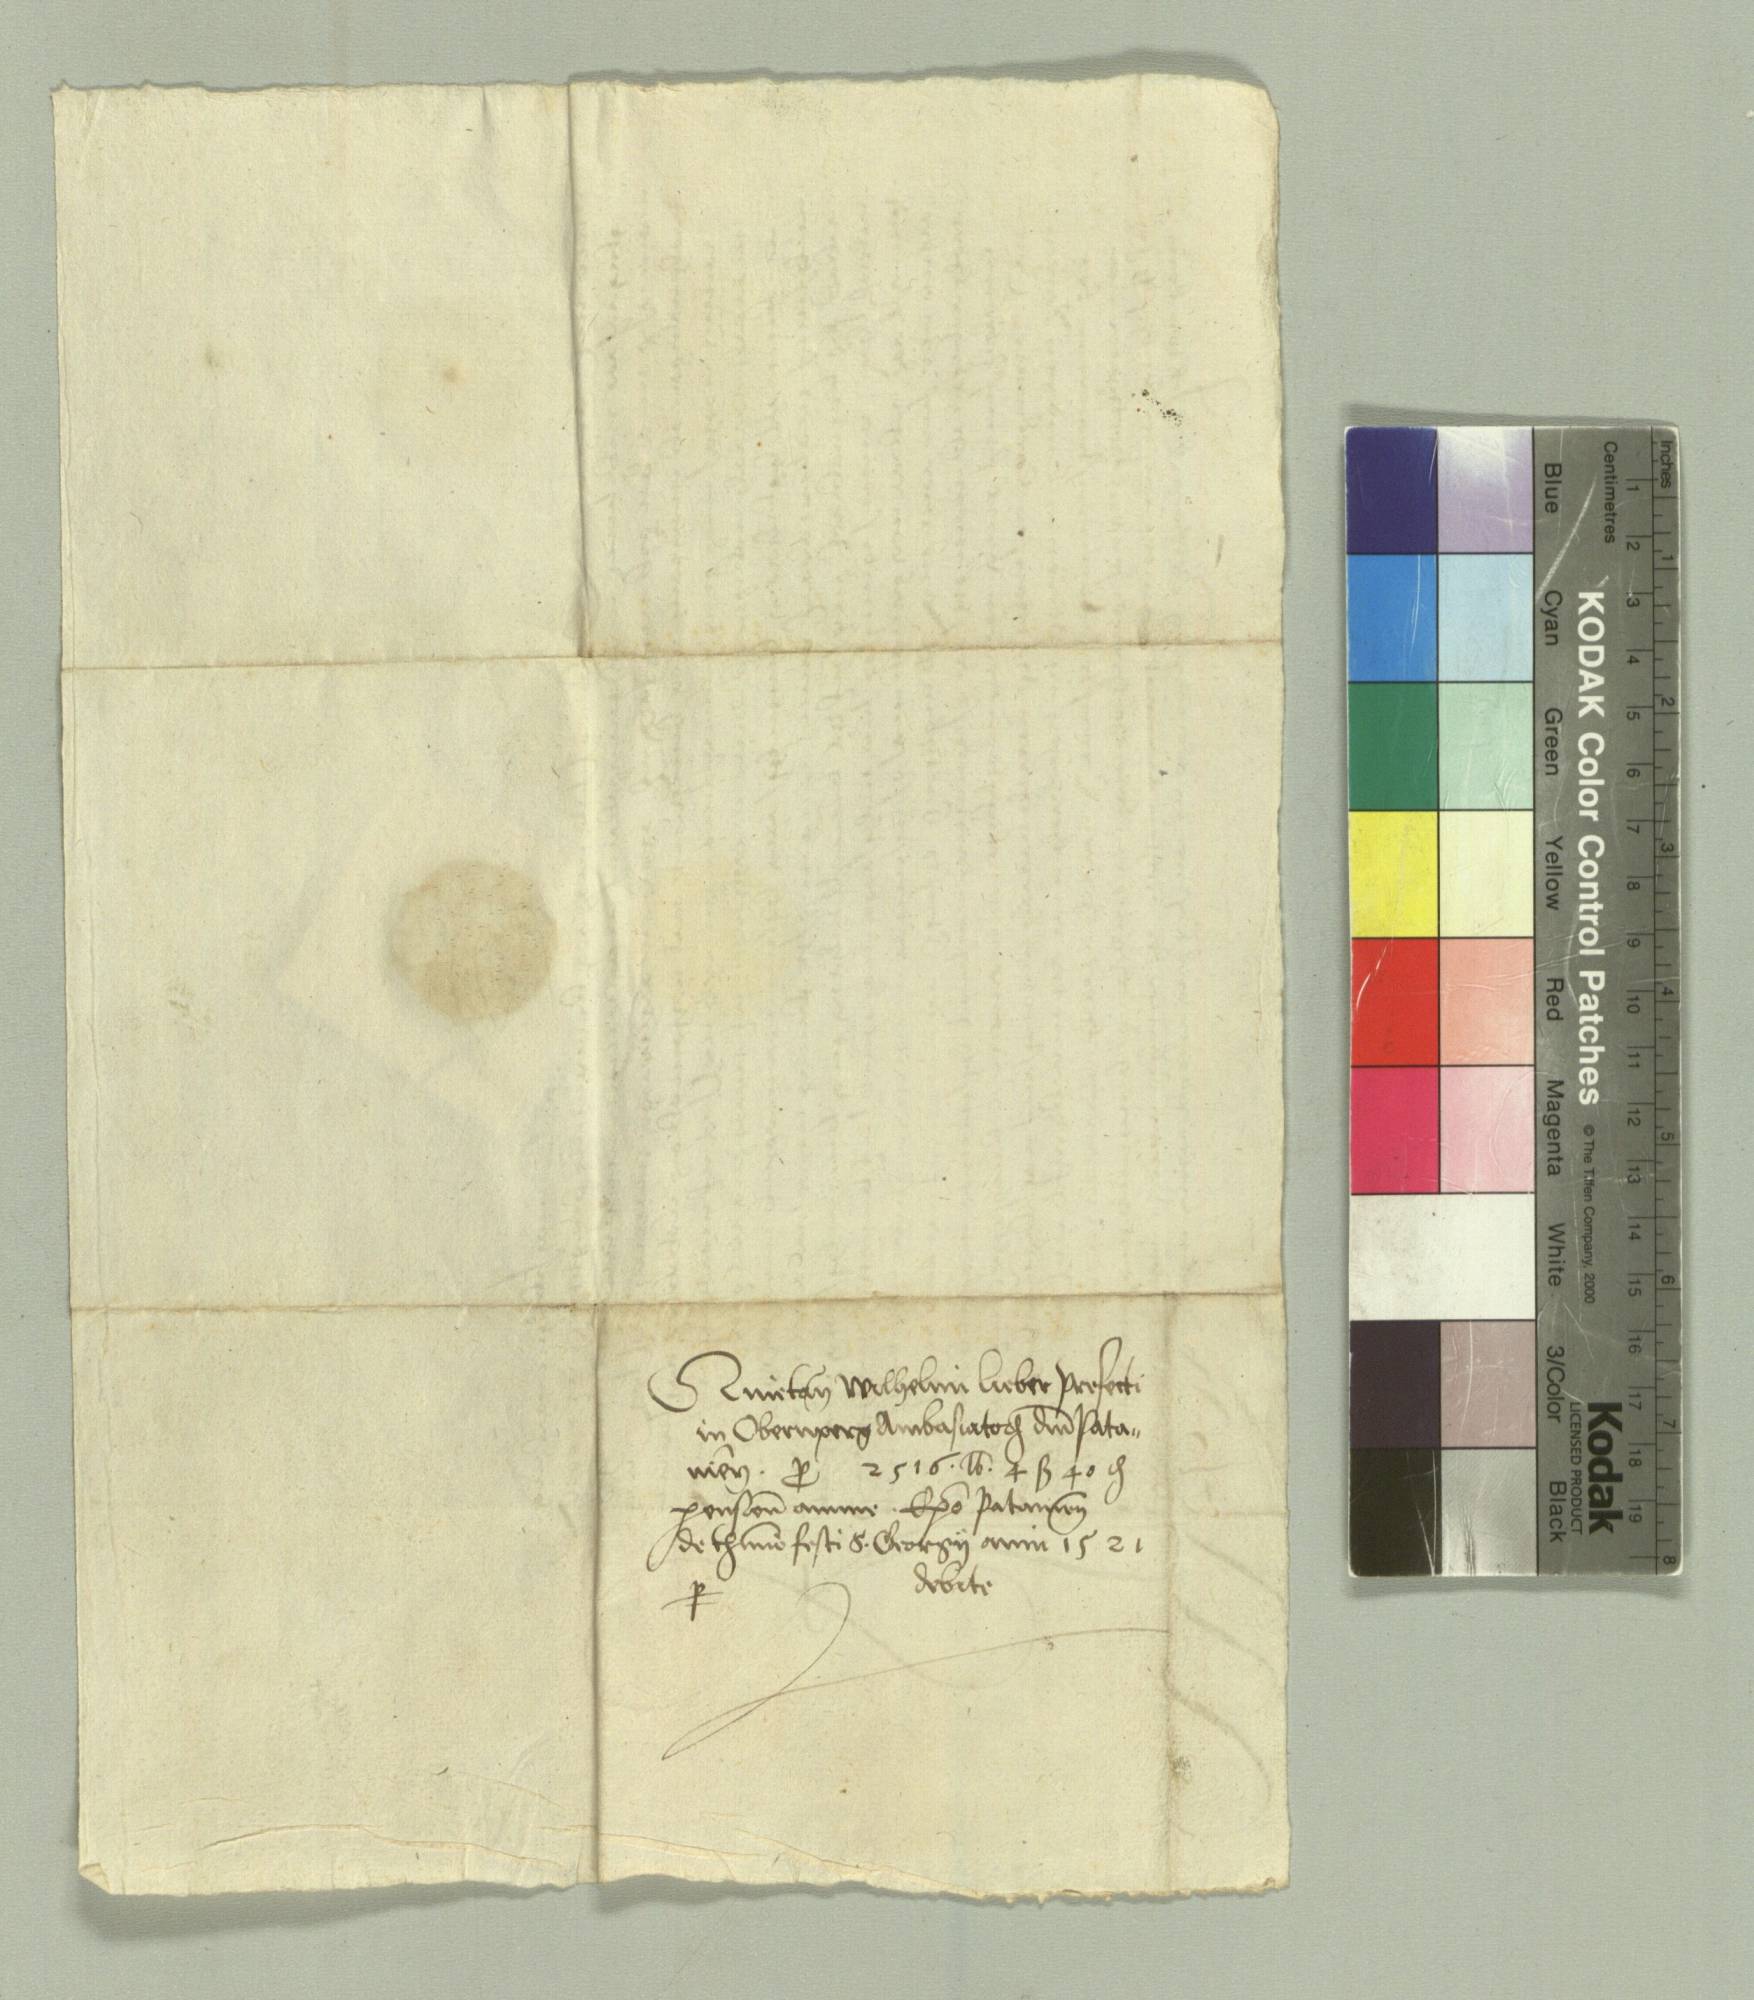 Quietañ Wilhelmi lieber prefecti
in Obernperg Ambasiatoꝝ dñi Pata-
vieñ. ꝑ 2516. lb. 4 ß 40 ₰
pensioñ annue. Epō Pataviēn
de th̄mino festi S. Georgÿ anni 1521
debite
KODAK Color Control Patches
© The Tiffen Company, 2000
Kodak
LICENSED PRODUCT
Inches
1 2 3 4 5 6 7 8
Centimetres
1 2 3 4 5 6 7 8 9 10 11 12 13 14 15 16 17 18 19
Blue Cyan Green Yellow Red Magenta White 3/Color Black